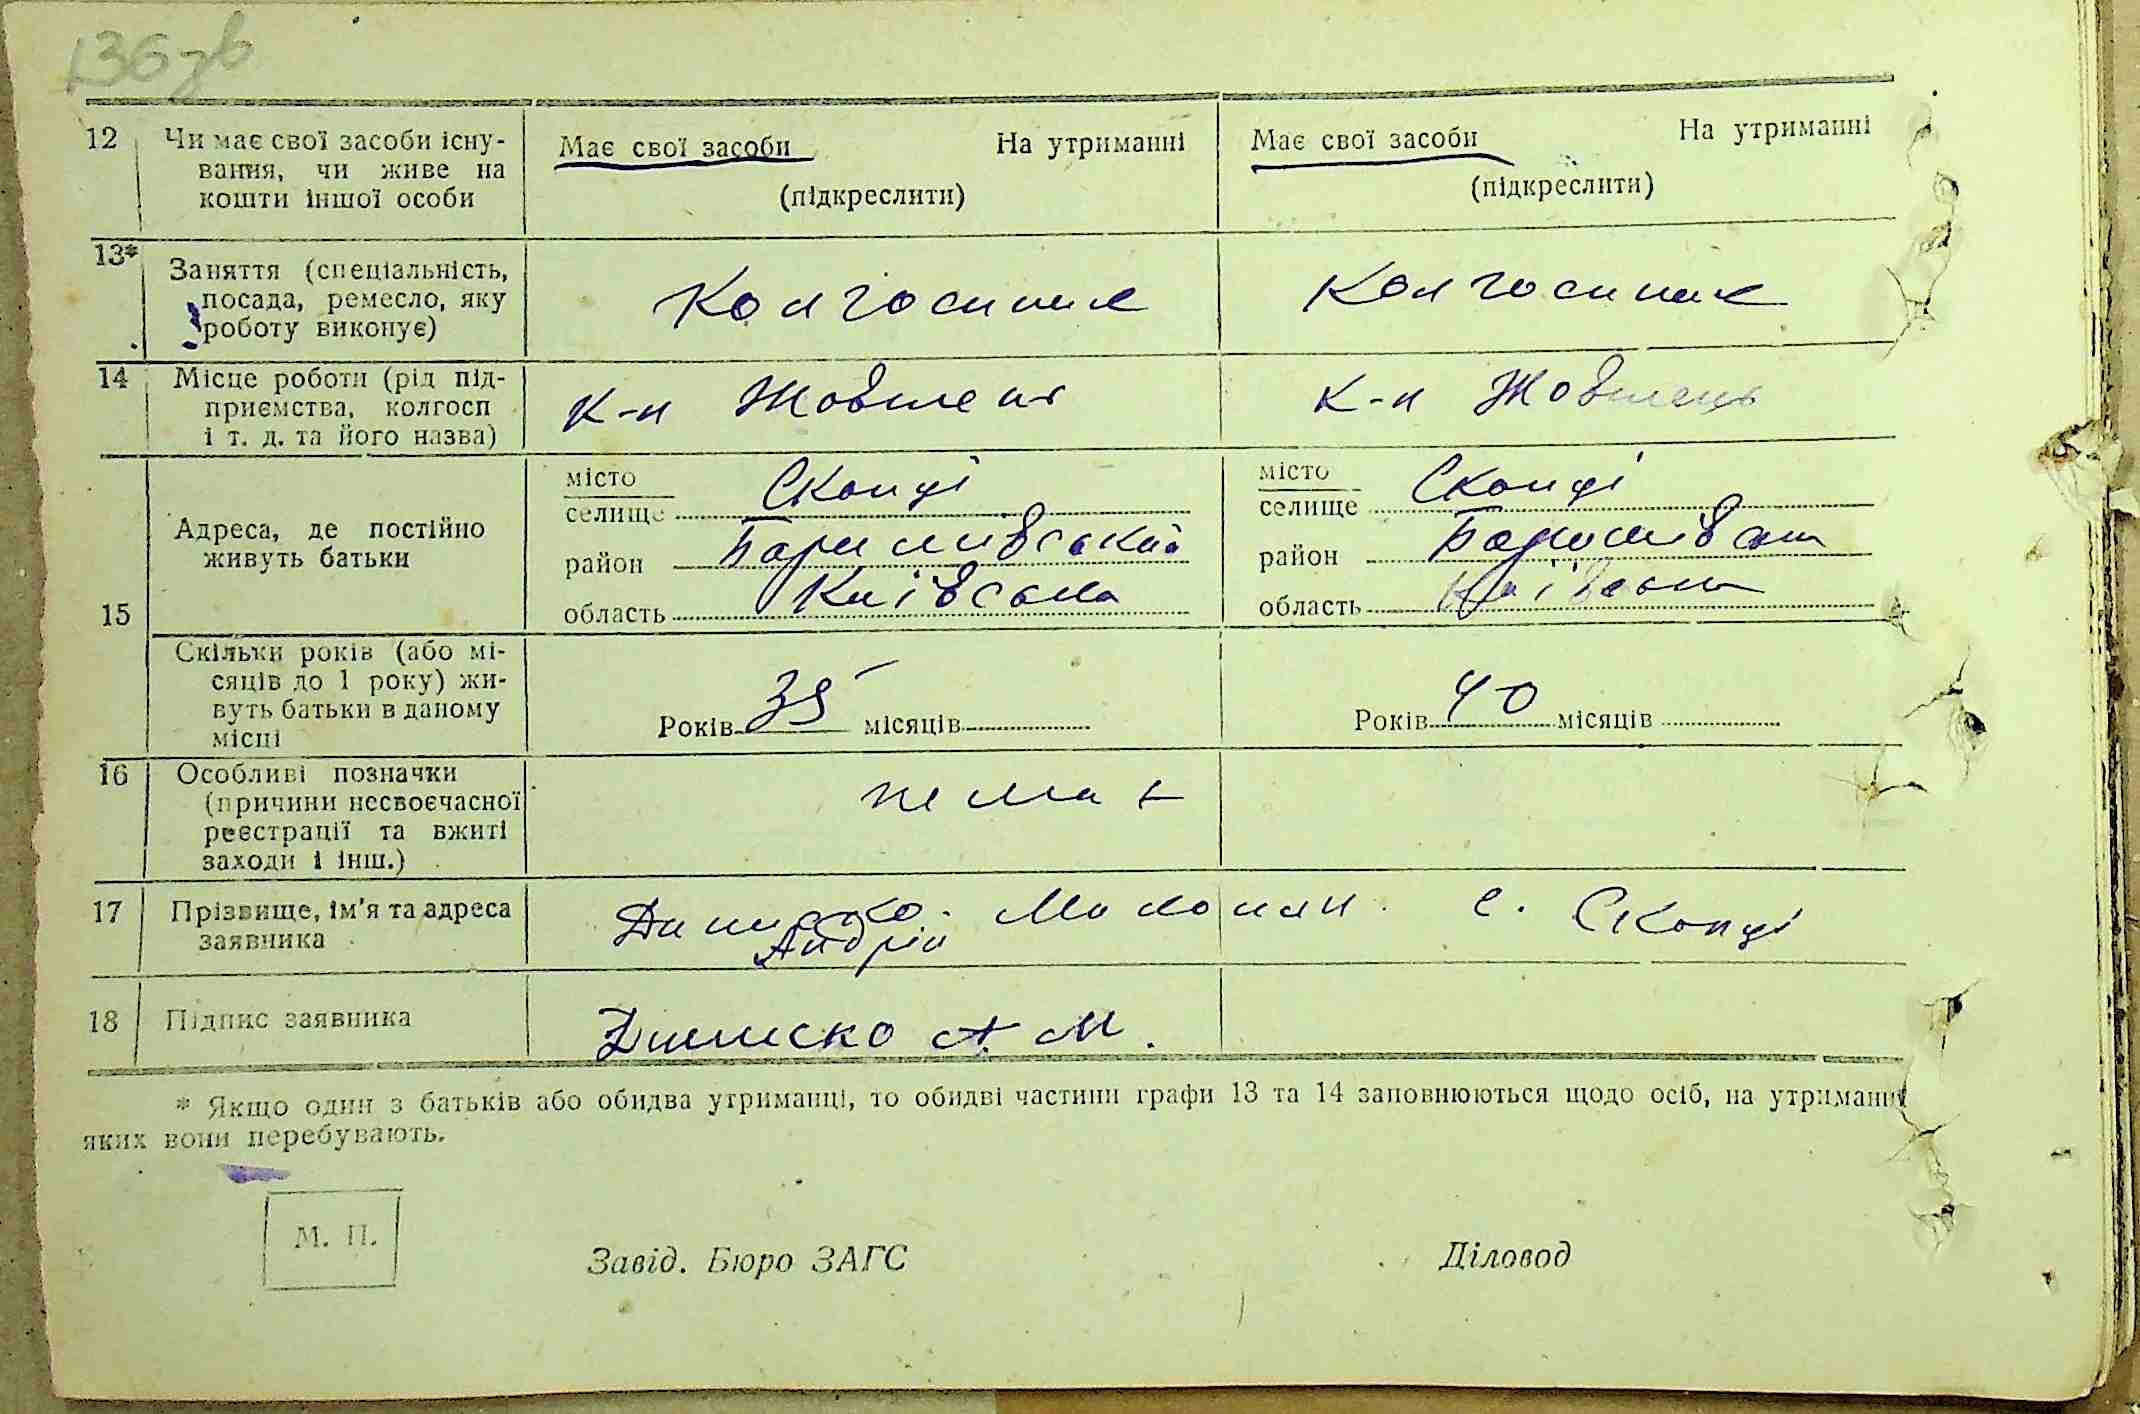 136 зв
12 Чи має свої засоби існу-
вання, чи живе на
кошти іншої особи
Має свої засоби На утриманні
(підкреслити)
Має свої засоби На утриманні
(підкреслити)
13* Заняття (спеціальність,
посада, ремесло, яку
роботу виконує)
Колгоспник
Колгоспник
14 Місце роботи (рід під-
приємства, колгосп
і т. д. та його назва)
к-п Жовтень
к-п Жовтень
15 Адреса, де постійно
живуть батьки
місто
селище Скопці
район Баришівський
область Київська
місто
селище Скопці
район Баришівськ
область Київськ
Скільки років (або мі-
сяців до 1 року) жи-
вуть батьки в даному
місці
Років 35 місяців
Років 40 місяців
16 Особливі позначки
(причини несвоєчасної
реєстрації та вжиті
заходи і інш.)
немає
17 Прізвище, ім'я та адреса
заявника
с. Скопці
Андрій
18 Підпис заявника
А. М.
* Якщо один з батьків або обидва утриманці, то обидві частини графи 13 та 14 заповнюються щодо осіб, на утриманні
яких вони перебувають.
М. П.
Завід. Бюро ЗАГС
Діловод